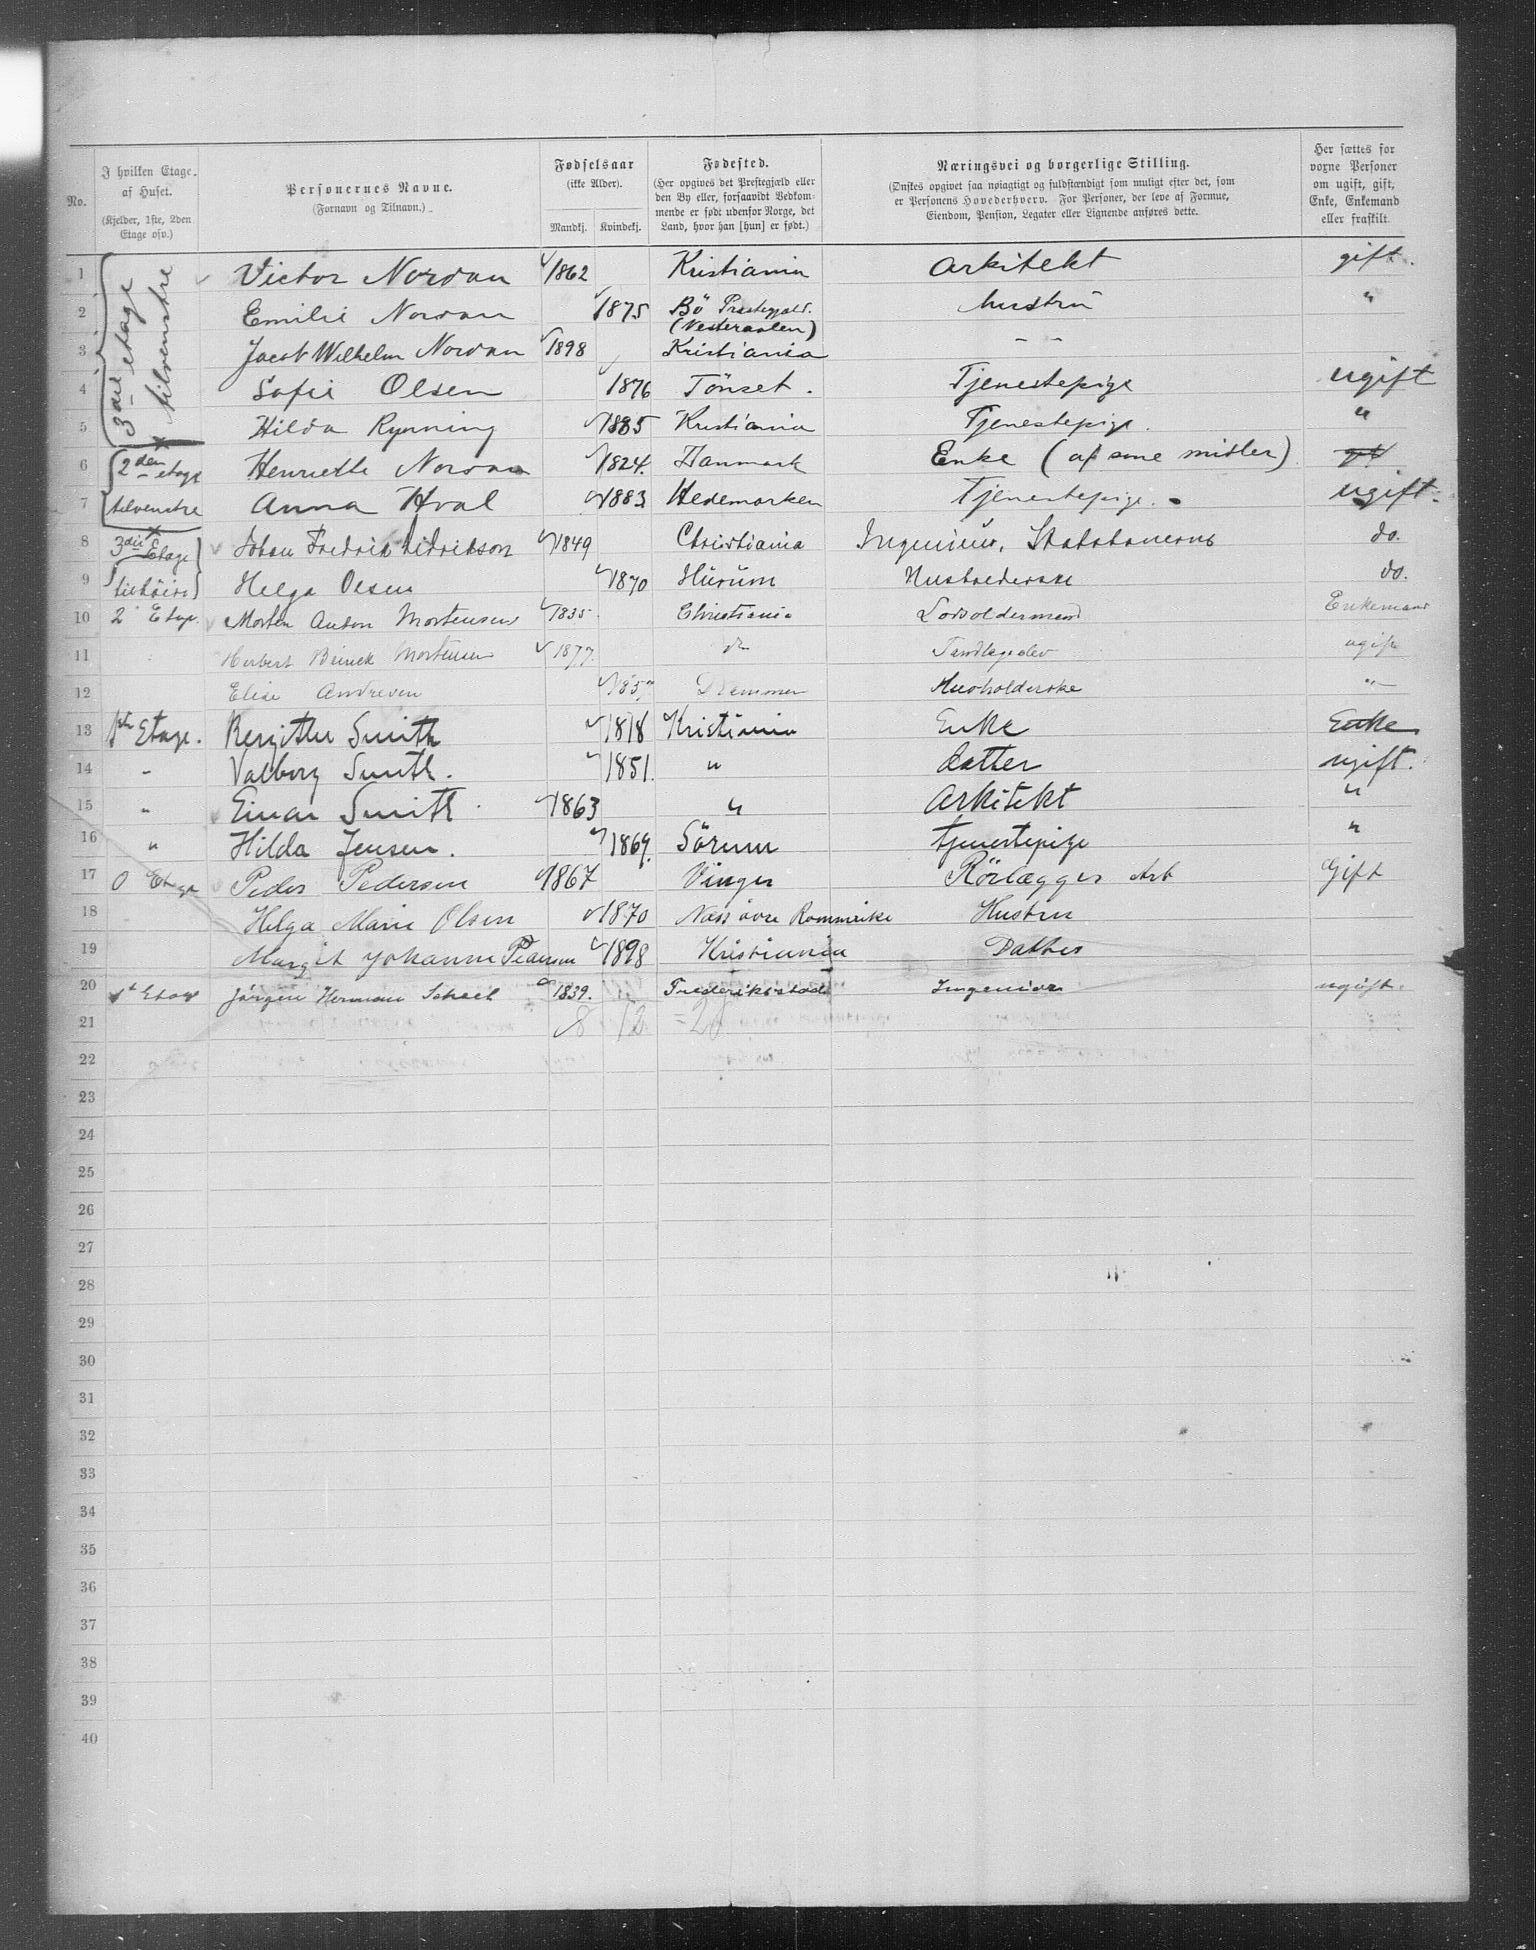 No.
I hvilken Etage af Huset.
(Kjelder, 1ste, 2den Etage osv.)
Personernes Navne.
(Fornavn og Tilnavn.)
Fødselsaar
(ikke Alder).
Mandkj.
Kvindekj.
Fødested.
(Her opgives det Prestegjæld eller
den By eller, forsaavidt Vedkom-
mende er født udenfor Norge, det
Land, hvor han [hun] er født.)
Næringsvei og borgerlige Stilling.
(Ønskes opgivet saa nøiagtigt og fuldstændigt som muligt efter det, som
er Personens Hovederhverv. For Personer, der leve af Formue,
Eiendom, Pension, Legater eller Lignende anføres dette.
Her sættes for
vorne Personer
om ugift, gift,
Enke, Enkemand
eller fraskilt.
3die etage tilvenstre
1 Victor Nordan 1862 Kristiania Arkitekt gift.
2 Emilie Nordan 1875 Bö Prestegjæld. (Vesteraalen) hustru "
3 Jacob Wilhelm Nordan 1898 Kristiania - -
4 Sofie Olsen 1876 Tönset. Tjenestepige ugift
5 Hilda Rynning 1885 Kristiania Tjenestepige. "
6 2den etage Henriette Nordan 1824. Danmark Enke (af sine midler)
7 tilvenstre Anna Hval 1883 Hedemarken Tjenestepige. ugift.
8 3die Etage Johan Fredrik Didrikson 1849 Christiania Ingeniör, Statsbanerne do.
9 tilhöire Helga Olsen 1870 Hurum Husholderske do.
10 2 Etage. Morten Anton Mortensen 1835. Christiania Lodsoldermand Enkemand
11 Herbert Mortensen 1877. do Tandlægeelev ugift
12 Elise Andresen Drammen Husholderske "
13 1ste Etage. Bergitte Smith 1818 Kristiania Enke Enke
14 " Valborg Smith. 1851. " datter ugift.
15 " Einar Smith 1863 " Arkitekt "
16 " Hilda Jensen. 1867. Sörum tjenestepige "
17 0 Etage Peder Pedersen 1867 Vinger Rörlægger Arb Gift
18 Helga Marie Olsen 1870 Næs övre Rommerike Hustru
19 Margit Johanne Pedersen 1898 Kristiania Datter
20 1st Etage Jörgen Herman Scheel 1839. Frederiksstad Ingeniör ugift.
21 8 12 = 20
22
23
24
25
26
27
28
29
30
31
32
33
34
35
36
37
38
39
40